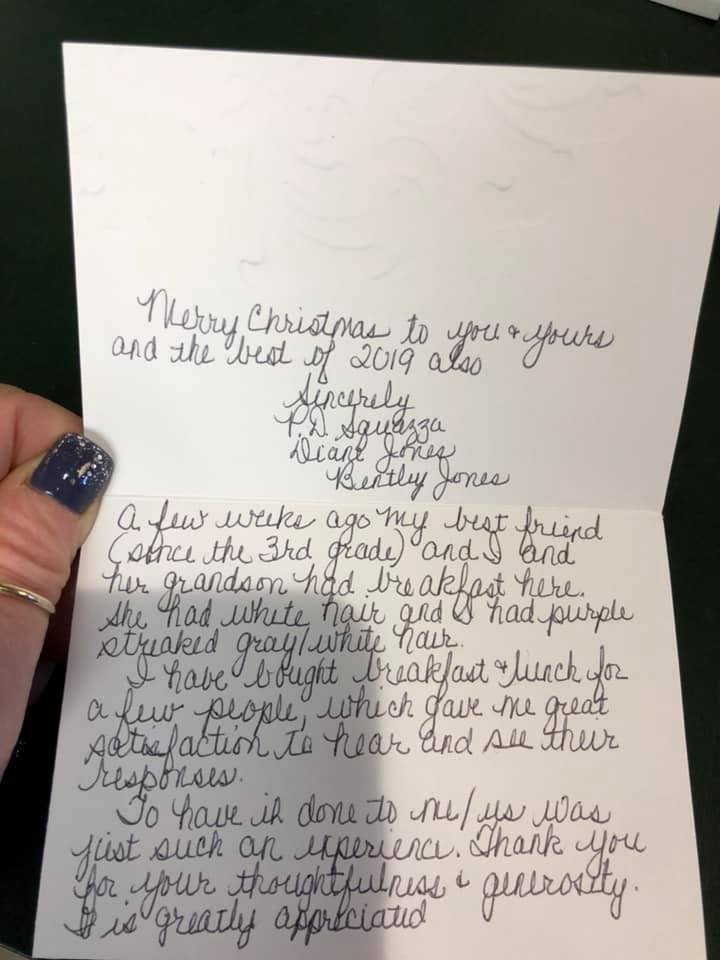 Merry Christmas to you & yours
and the best of 2019 also
Sincerely
P.D. Squazza
Diane Jones
Bently Jones
A few weeks ago my best friend
(since the 3rd grade) and I and
her grandson had breakfast here.
She had white hair and I had purple
streaked gray/white hair.
I have bought breakfast & lunch for
a few people, which gave me great
satisfaction to hear and see their
responses.
To have it done to me/us was
just such an experience. Thank you
for your thoughtfulness & generosity.
It is greatly appreciated